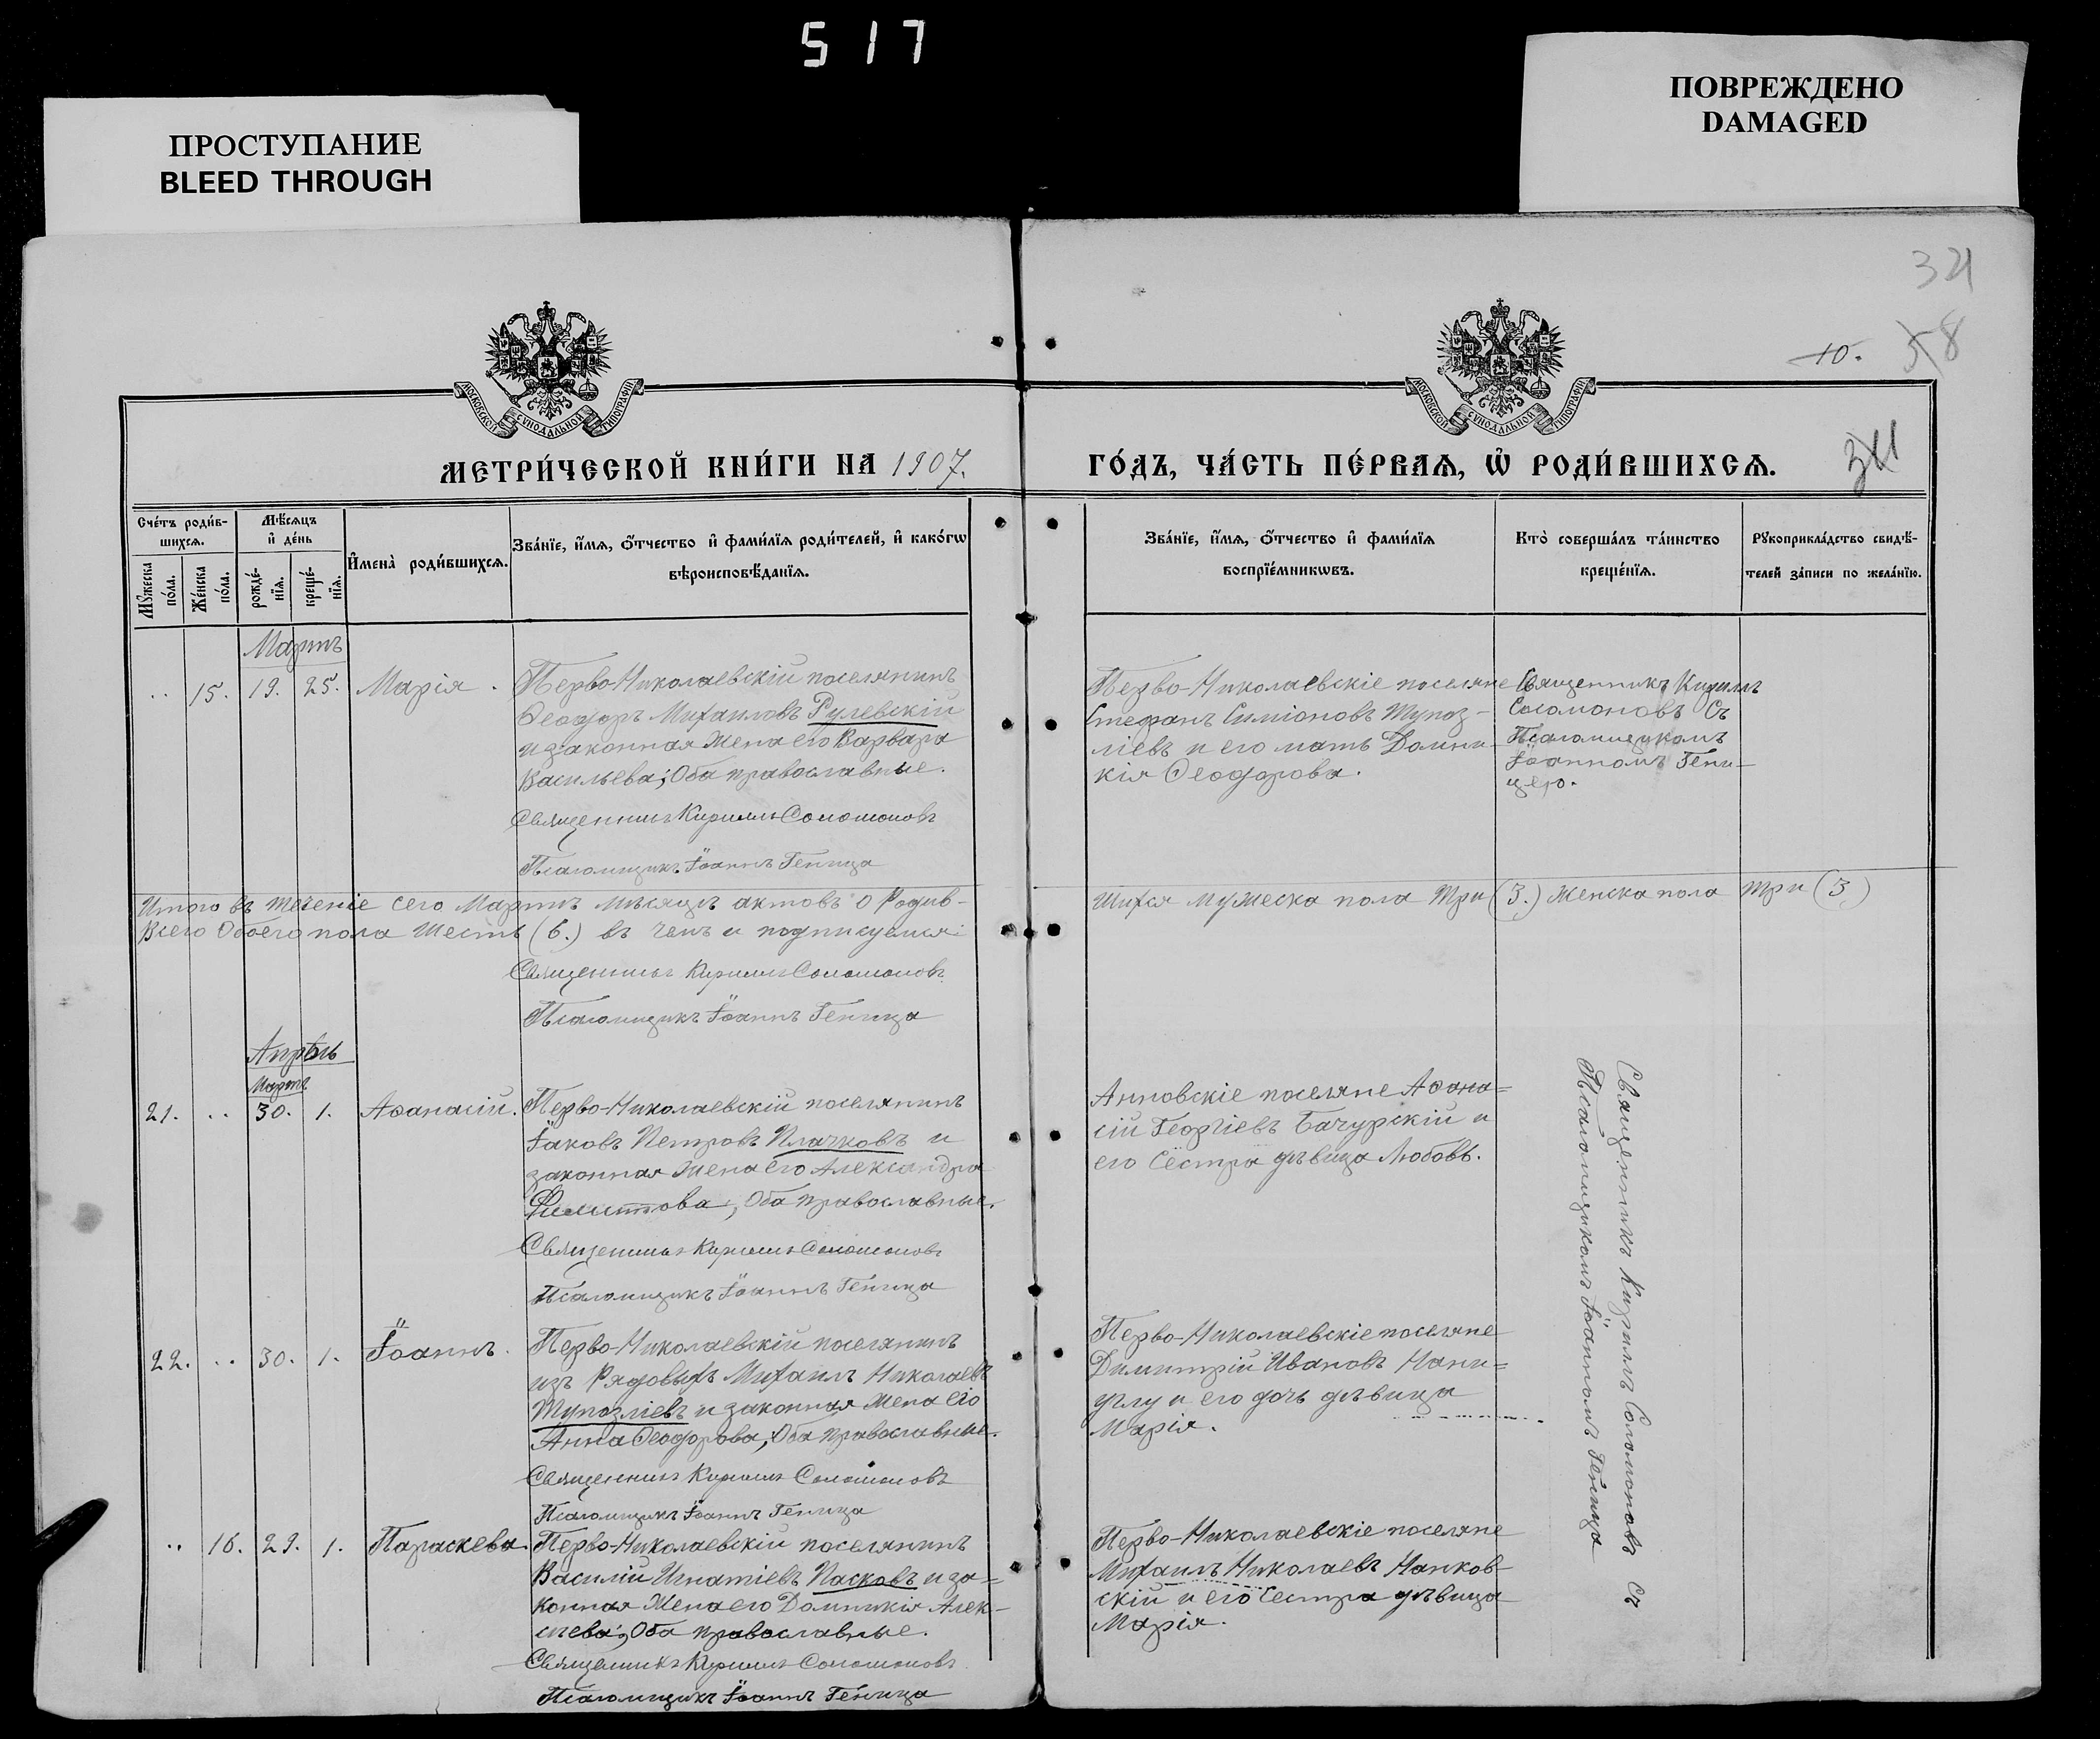 517
ПРОСТУПАНИЕ
BLEED THROUGH
ПОВРЕЖДЕНО
DAMAGED
321
10.
58
МОСКОВСКОЙ СУНОДАЛЬНОЙ ТИПОГРАФІИ
МОСКОВСКОЙ СУНОДАЛЬНОЙ ТИПОГРАФІИ
МЕТРИ́ЧЕСКОЙ КНИ́ГИ НА 1907.
ГО́ДЪ, ЧА́СТЬ ПЕ́РВАѦ, Ѡ҆ РОДИ́ВШИХСѦ.
Сче́тъ роди́в-
шихсѧ.
Мꙋ́жеска по́ла.
Же́нска по́ла.
Мѣ́сѧцъ
и҆ де́нь
рожде́-
нїѧ.
креще́-
нїѧ.
И҆мена̀ роди́вшихсѧ.
Зва́нїе, и҆́мѧ, ѻ҆́тчество и҆ фами́лїѧ роди́телей, и҆ како́гѡ
вѣроисповѣ́данїѧ.
Зва́нїе, и҆́мѧ, ѻ҆́тчество и҆ фами́лїѧ
воспрїе́мникѡвъ.
Кто̀ соверша́лъ та́инство
креще́нїѧ.
Рꙋкоприкла́дство свидѣ́-
телей за́писи по жела́нїю.
Мартъ
.. 15. 19. 25. Марія.
Перво-Николаевскій поселянинъ
Ѳеодоръ Михаиловъ Рулевскій
и законная жена его Варвара
Васильева; Оба православные.
Священникъ Кириллъ Соломоновъ
Псаломщикъ Іоаннъ Геница
Перво-Николаевскіе поселяне
Стефанъ Симіоновъ Тупоз-
ліевъ и его мать Домни-
кія Ѳеодорова.
Священникъ Кириллъ
Соломоновъ съ
Псаломщикомъ
Іоанномъ Гени-
цею.
Итого въ теченіе сего Мартъ мѣсяцъ актовъ о Родив-
шихся мужеска пола три (3.) женска пола три (3)
Всего Обоего пола шесть (6.) въ чемъ и подписуемся:
Священникъ Кириллъ Соломоновъ
Псаломщикъ Іоаннъ Геница
Апрѣль
Мартъ
21. .. 30. 1. Аѳанасій.
Перво-Николаевскій поселянинъ
Іаковъ Петровъ Плачковъ и
законная жена его Александра
Филиппова, Оба православные.
Священникъ Кириллъ Соломоновъ
Псаломщикъ Іоаннъ Геница
Анновскіе поселяне Аѳана=
сій Георгіевъ Бачурскій и
его сестра дѣвица Любовь.
Священникъ Кириллъ Соломоновъ съ
Псаломщикомъ Іоанномъ Геница
22. .. 30. 1. Іоаннъ.
Перво-Николаевскій поселянинъ
изъ Рядовыхъ Михаилъ Николаевъ
Тупозліевъ и законная жена его
Анна Ѳеодорова, Оба православные.
Священникъ Кириллъ Соломоновъ
Псаломщикъ Іоаннъ Геница
Перво-Николаевскіе поселяне
Димитрій Ивановъ
и его дочь дѣвица
Марія.
.. 16. 29. 1. Параскева.
Перво-Николаевскій поселянинъ
Василій Игнатіевъ Пасковъ и за=
конная жена его Домникія Алек-
сѣева, Оба православные.
Священникъ Кириллъ Соломоновъ
Псаломщикъ Іоаннъ Геница
Перво-Николаевскіе поселяне
Михаилъ Николаевъ Напков-
скій и его сестра дѣвица
Марія.